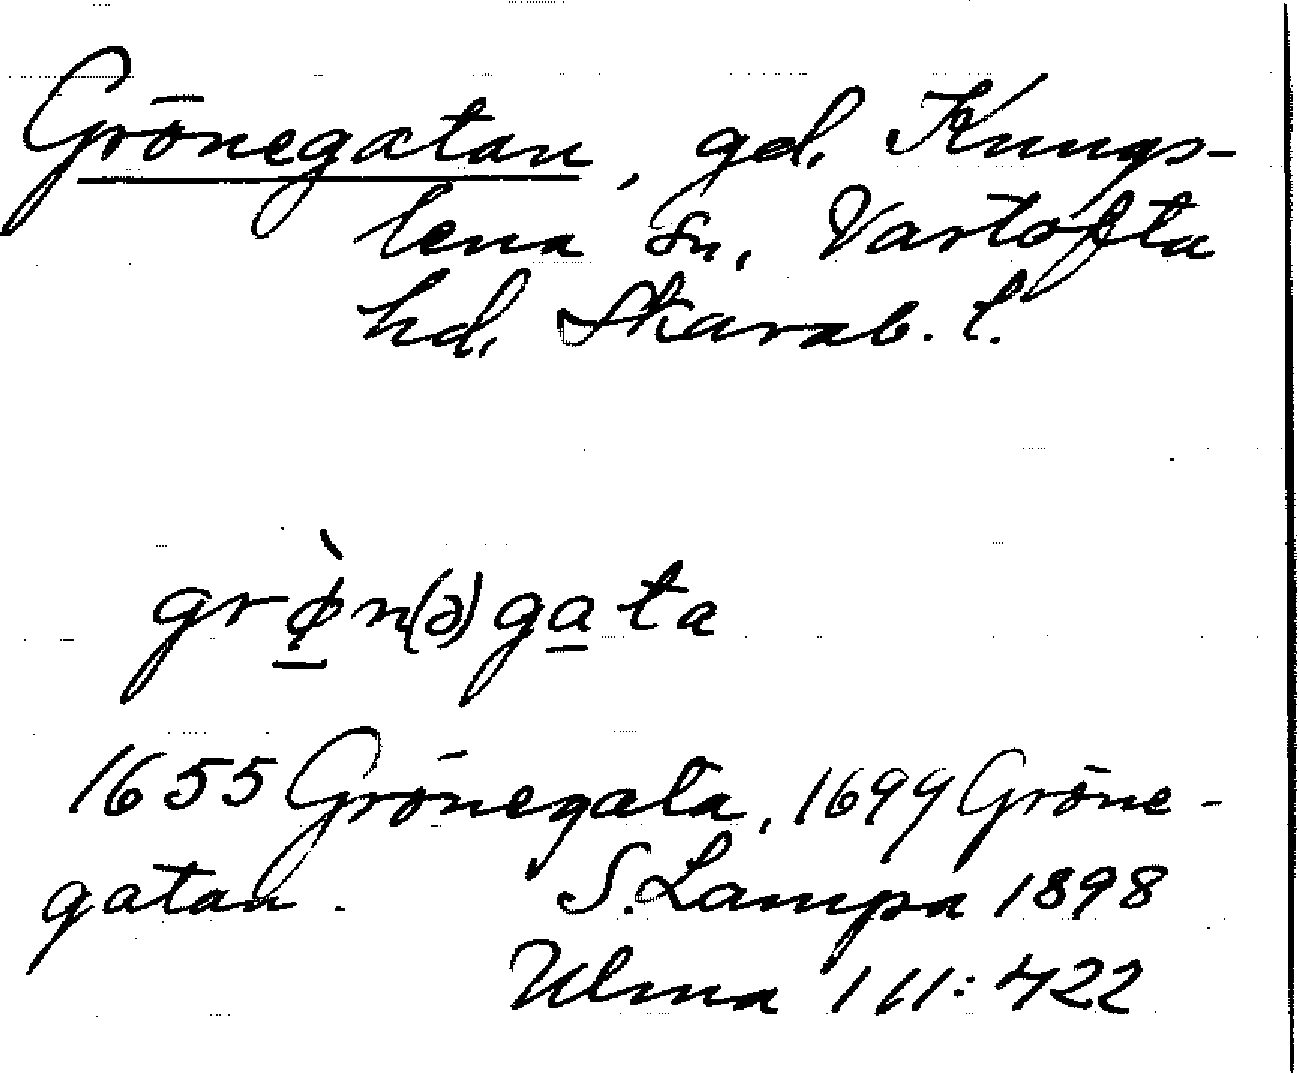 Grönegatan, gd. Kungs-
lena sn, Vartofta
hd. Skarab. l.
grø̀n(ə)gata
1655 Grönegata, 1699 Gröne-
gatan. S. Lampa 1898
Ulma 111:422